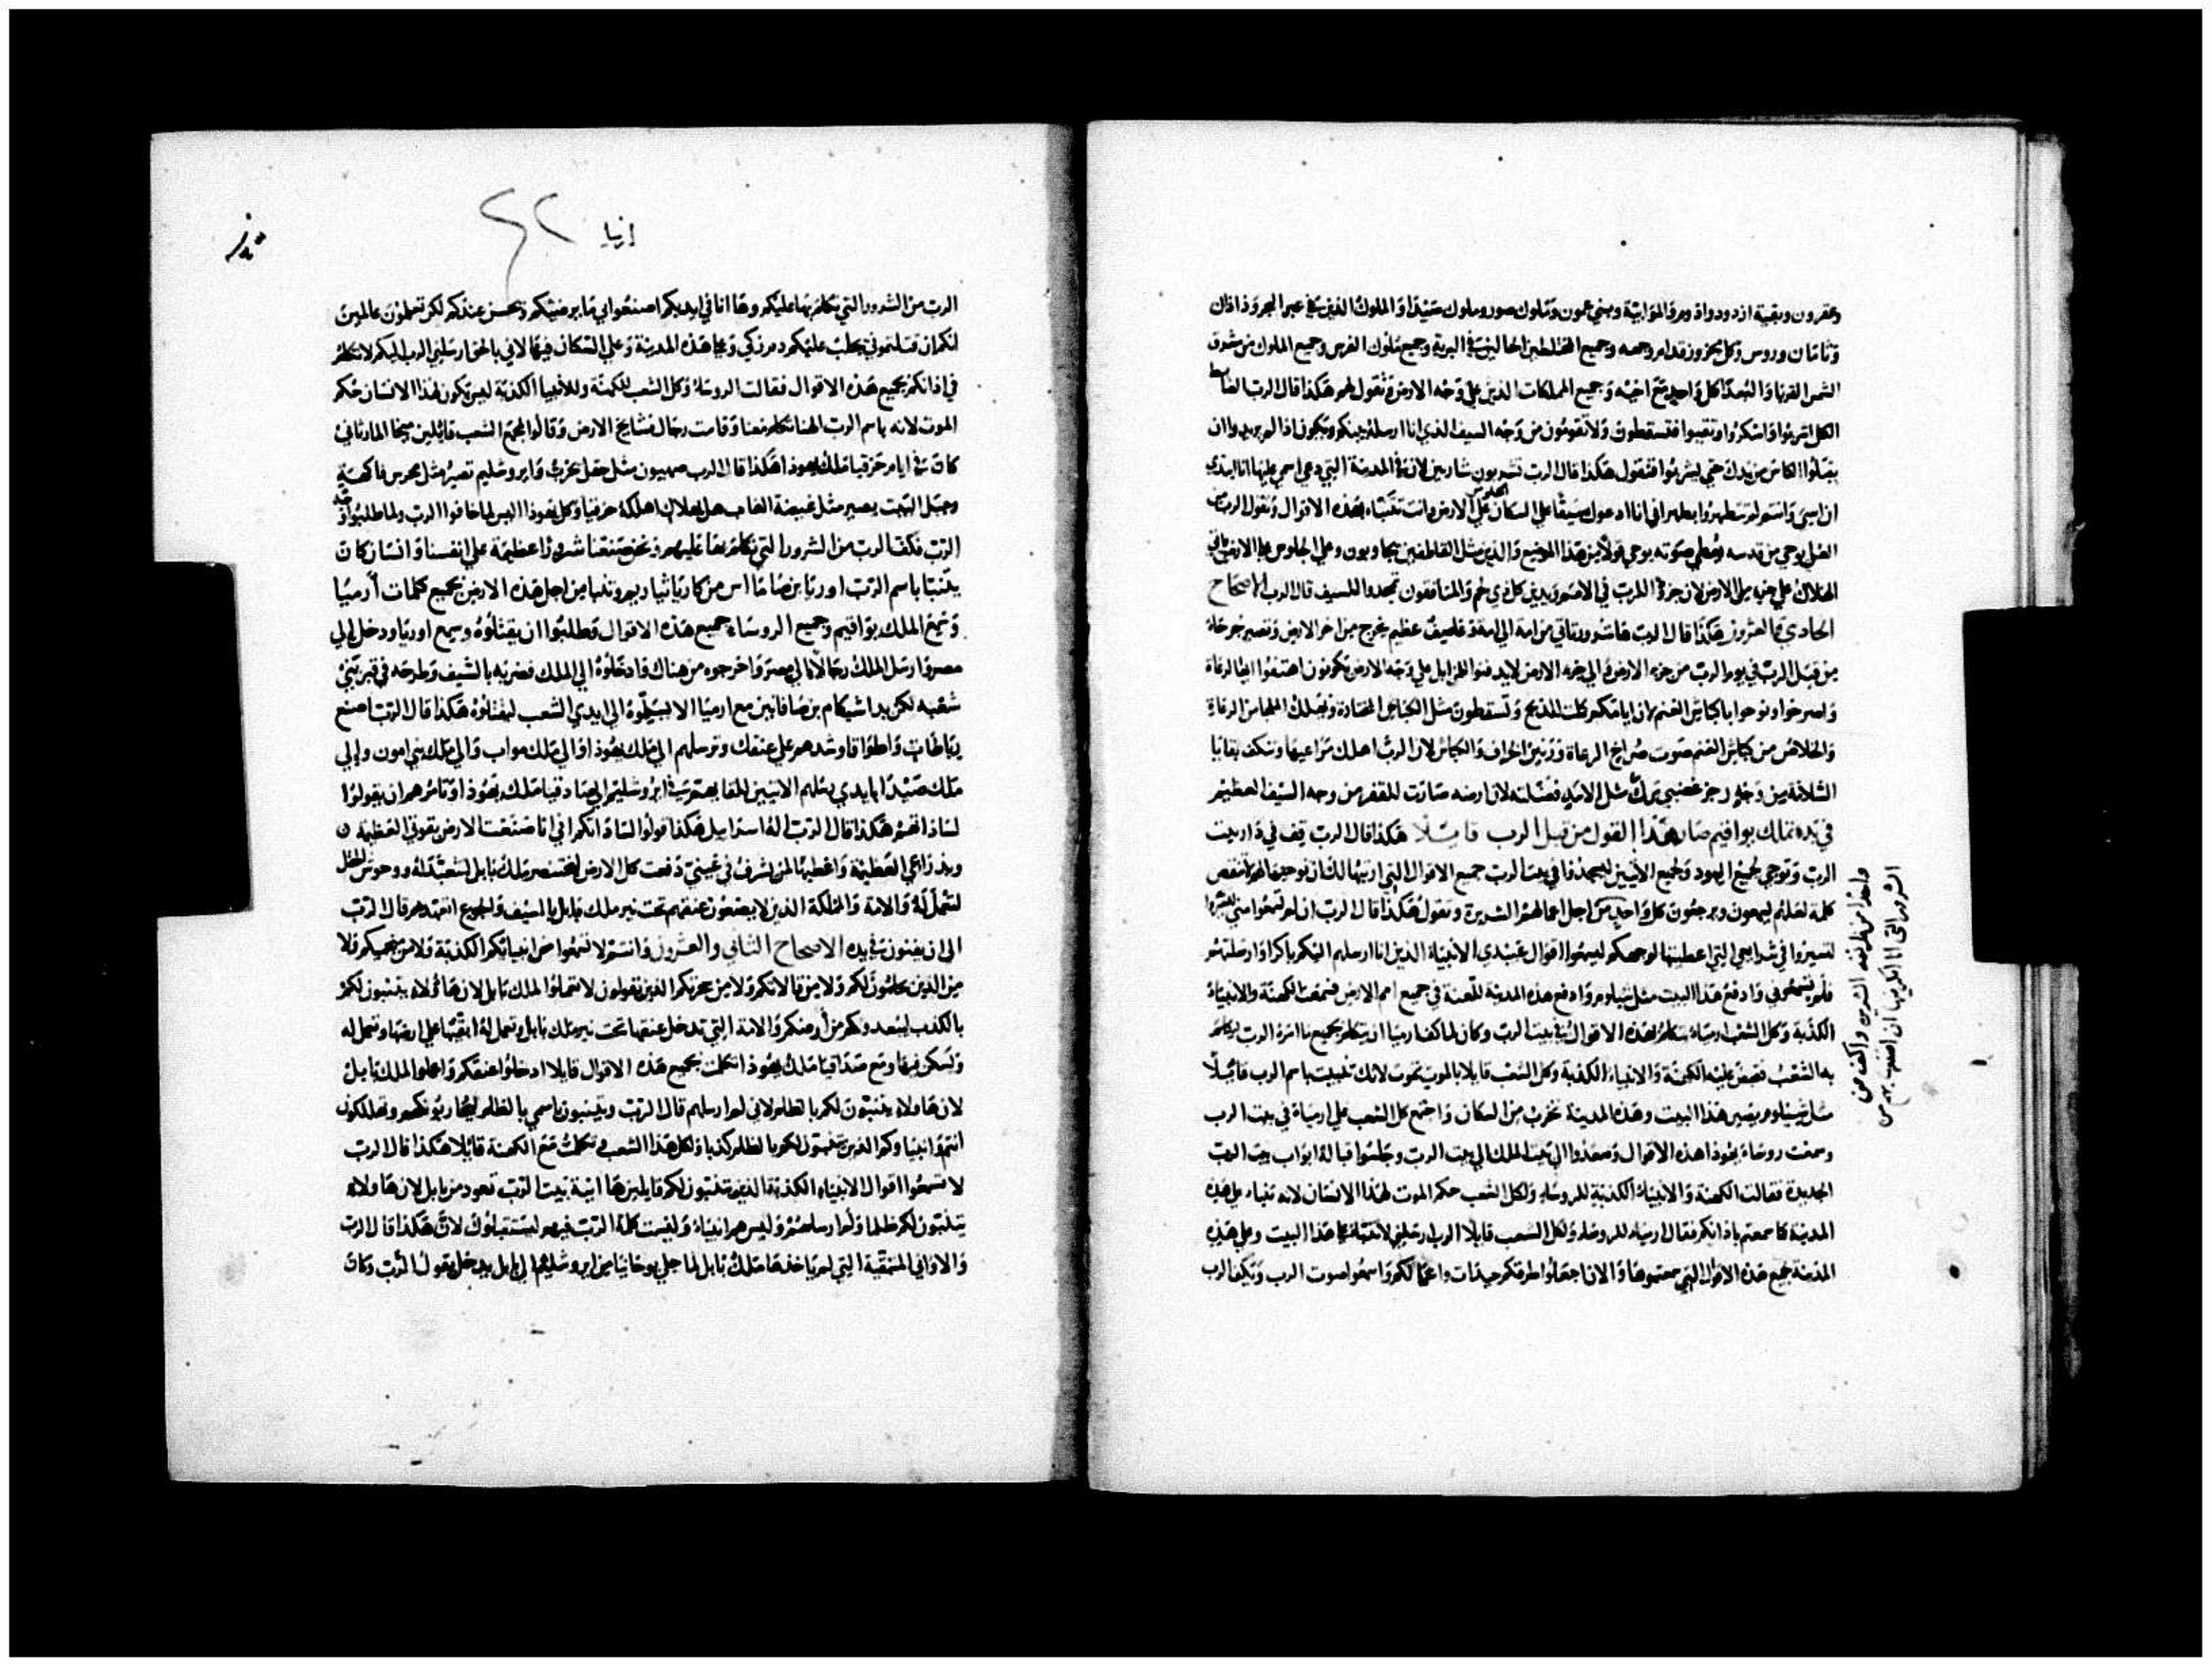 وعقرون وبقية ازدود وادوم والموابية وبني عمون وملوك صور وملوك صيدا والملوك الذين في عبر البحر وداذان
وثامان وروس وكل مخزوز قدام وجهه وجميع المختلطين الحالين في البرية وجميع ملوك الفرس وجميع الملوك من شرق
الشمس القربا والبعدا كل واحد مع اخيه وجميع المملكات الذين علي وجه الارض وتقول لهم هكذا قال الرب الضابط
الكل اشربوا واسكروا وتقيوا فتسقطون ولا تقومون من وجه السيف الذي انا ارسله بينكم ويكون اذا لم يريدوا ان
يقبلوا الكاس من يدك حتي يشربوا فتقول هكذا قال الرب تشربون شاربين لان في المدينة التي دعي اسمي عليها انا ابتدي
ان اسي وانتم لم تتطهروا بطهر اني انا ادعوك سيفا علي السكان الجلوس علي الارض وانت تتنبا بهذه الاقوال وتقول الرب من
العلي يوحي من قدسه يعطي صوته يوحي قولا من هذا الموضع والذين مثل القاطفين يجاوبون وعلي الجلوس علي الارض ياتي
الهلاك علي جزء من الارض لان جزء للرب في الامم ويدين كل ذي لحم والمنافقون تجددوا للسيف قال الرب الاصحاح
الحادي والعشرون هكذا قال الرب ها شرور تاتي من امة الي امة وعاصف عظيم يخرج من اخر الارض وتصير جرحات
من قبل الرب في يوم الرب من جزء الارض والي جزء الارض لا يدفنوا المزابل علي وجه الارض تكونون اهتفوا ايها الرعاة
واصرخوا ونوحوا يا كباش الغنم لان ايامكم كملت للذبح وتسقطون مثل الكباش المختارة ويهلك الملجا من الرعاة
والخلاص من كباش الغنم صوت صراخ الرعاة وزئير الخراف والكباش لان الرب اهلك مراعيها وتكف بقايا
السلامة من وجه رجز غضبي ترك مثل الاسد فضلته لان ارضه صارت للقفر من وجه السيف العظيم
في بدء تملك يواقيم صار هذا القول من قبل الرب قايلا هكذا قال الرب قف في دار بيت
الرب وتوحي لجميع اليهود ولجميع الاتيين ليسجدوا في بيت الرب جميع الاقوال التي اريتها لك ان توحيها لهم لا تنقص
كلمة لعلهم يسمعون ويرجعون كل واحد من اجل اعمالهم الشريرة وتقول هكذا قال الرب ان لم تسمعوا مني
لتسيروا في شرايعي التي اعطيتها لوجهكم لتسمعوا اقوال عبيدي الانبياء الذين انا ارسلهم اليكم باكرا وارسلتهم
فلم تسمعوني وادفع هذا البيت مثل شيلوم وادفع هذه المدينة للعنة في جميع امم الارض فسمعت الكهنة والانبياء
الكذبة وكل الشعب ارمياء يتكلم بهذه الاقوال في بيت الرب وكان لما كف ارميا ان يتكلم بجميع ما امره الرب يتكلم
به الشعب فقبض عليه الكهنة والانبياء الكذبة وكل الشعب قايلا بالموت تموت لانك تنبيت باسم الرب قايلا
مثل شيلوم يصير هذا البيت وهذه المدينة تخرب من السكان واجتمع كل الشعب علي ارمياء في بيت الرب
وسمعت روساء يهوذا هذه الاقوال وصعدوا الي بيت الملك الي بيت الرب وجلسوا قبالة ابواب بيت الرب
الجديدة فقالت الكهنة والانبياء الكذبة للروساء ولكل الشعب حكم الموت لهذا الانسان لانه تنباء علي هذه
المدينة كما سمعتم باذانكم فقال ارمياء للروساء ولكل الشعب قايلا الرب ارسلني لاتنباء علي هذا البيت وعلي هذه
المدينة جميع هذه الاقوال التي سمعتموها والان اجعلوا طرقكم جيدات واعمالكم واسمعوا صوت الرب ويكف الرب
واحد من طريقه الشريره واكف عن
الشرور التي انا افكر بها ان اصنعها بهم من
ارميا
٢٢
الرب من الشرور التي تكلم بها عليكم وها انا في ايديكم اصنعوا بي ما يرضيكم ويحسن عندكم لكن تعلمون عالمين
انكم ان قتلتموني يجلب عليكم دم زكي وعلي هذه المدينة وعلي السكان فيها لاني بالحق ارسلني الرب اليكم لاتكلم
في اذانكم بجميع هذه الاقوال فقالت الروساء وكل الشعب للكهنة وللانبيا الكذبة ليس يكون لهذا الانسان حكم
الموت لانه باسم الرب الهنا تكلم معنا وقامت رجال من مشايخ الارض وقالوا لمجمع الشعب قايلين ميخا المارثاني
كان في ايام حزقيا ملك يهوذا هكذا قال الرب صهيون مثل حقل تحرث وايروشليم تصير مثل محرس فاكهة
وجبل البيت يصير مثل غيضة الغاب هل اهلاك اهلكه حزقيا وكل يهوذا اليس لما خافوا الرب ولما طلبوا وجه
الرب فكف الرب من الشرور التي تكلم بها عليهم ونحن صنعنا شرورا عظيمة علي انفسنا وانسان كان
يتنبا باسم الرب اوريا بن صاماا اس من كارياثياريم وتنبا من اجل هذه الارض بجميع كلمات ارميا
وسمع الملك يواقيم وجميع الروساء جميع هذه الاقوال وطلبوا ان يقتلوه وسمع اوريا ودخل الي
مصر وارسل الملك رجالا الي مصر واخرجوه من هناك وادخلوه الي الملك فضربه بالسيف وطرحه في قبر بني
شعبه لكن يد اشيكام بن صافان من مع ارميا الا يسلموه الي ايدي الشعب ليقتلوه هكذا قال الرب اصنع
رباطات واطواقا وشدهم علي عنقك وترسلهم الي ملك يهوذا والي ملك مواب والي ملك بني امون والي
ملك صيدا بايدي رسلهم الاتيين للقايهم في ايروشليم الي صادقيا ملك يهوذا وتامرهم ان يقولوا
لساداتهم هكذا قال الرب اله اسراييل هكذا قولوا لساداتكم اني انا صنعت الارض بقوتي العظيمة
وبذراعي العظيمة واعطيها لمن يشرف في عيني دفعت كل الارض لبختنصر ملك بابل لتتعبد له ووحوش الحقل
لتعمل له والامة والمملكة الذين لا يضعون عنقهم تحت نير ملك بابل بالسيف والجوع افتقدهم قال الرب
الي ان يفنون في يده الاصحاح الثاني والعشرون وانتم لا تسمعوا من انبيايكم الكذبة ولا من منجميكم ولا
من الذين يحلمون لكم ولا من فالاتكم ولا من سحرتكم الذين يقولون لا تعملوا لملك بابل لان هاولاء يتنبون لكم
بالكذب ليبعدونكم من ارضكم والامة التي تدخل عنقها تحت نير ملك بابل وتعمل له ابقيها علي ارضها وتعمل له
وتسكن فيها ومع صداقيا ملك يهوذا تكلمت بجميع هذه الاقوال قايلا ادخلوا عنقكم واعملوا لملك بابل
لان هاولاء يتنبون لكم بالظلم لاني لم ارسلهم قال الرب ويتنبون باسمي بالظلم وتهلكون
انتم وانبياوكم الذين يتنبون لكم بالظلم كذبا ولكل هذا الشعب وتكلمت مع الكهنة قايلا هكذا قال الرب
لا تسمعوا اقوال الانبياء الكذبة الذين يتنبون لكم قايلين ها انية بيت الرب تعود من بابل لان هاولاء
يتنبون لكم ظلما ولم ارسلهم وليس هم انبياء وليست كلمة الرب فيهم ليستقبلوك لان هكذا قال الرب
والاواني المتبقية التي لم ياخذها ملك بابل لما جلي يوخانيا من ايروشليم الي بابل يدخل يقول الرب وكان